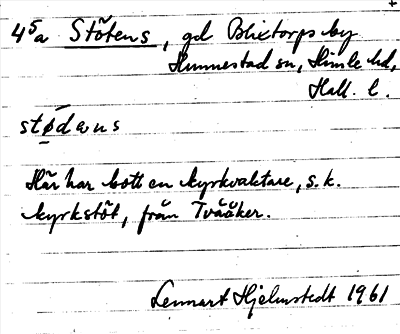 4⁵a Stötens, gd Blixtorps by
Hunnestad sn, Himle hd,
Hall. l.
stǿdæns
Här har bott en kyrkvaktare, s.k.
kyrkstöt, från Tvååker.
Lennart Hjelmstedt 1961